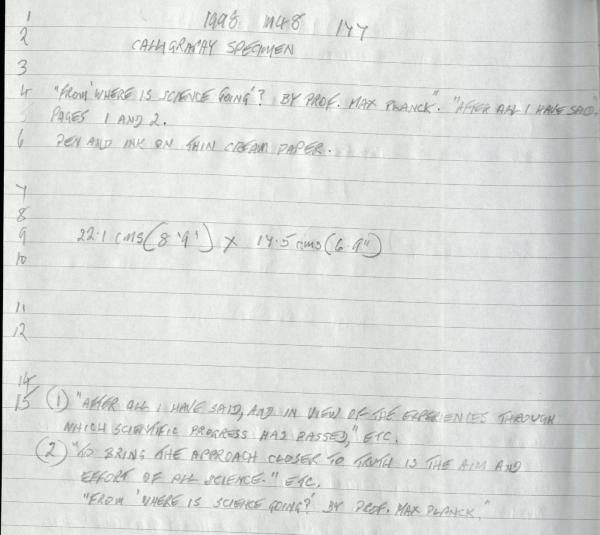 1 1998 M48 177
2 CALLIGRAPHY SPECIMEN
3
4 "FROM 'WHERE IS SCIENCE GOING'? BY PROF. MAX PLANCK". "AFTER ALL I HAVE SAID",
5 PAGES 1 AND 2.
6 PEN AND INK ON THIN CREAM PAPER.
7
8
9 22.1 cms (8.9") X 17.5 cms (6.9")
10
11
12
14
15 (1) "AFTER ALL I HAVE SAID, AND IN VIEW OF THE EXPERIENCES THROUGH
WHICH SCIENTIFIC PROGRESS HAS PASSED," ETC.
(2) "TO BRING THE APPROACH CLOSER TO TRUTH IS THE AIM AND
EFFORT OF ALL SCIENCE." ETC.
"FROM 'WHERE IS SCIENCE GOING?' BY PROF. MAX PLANCK."